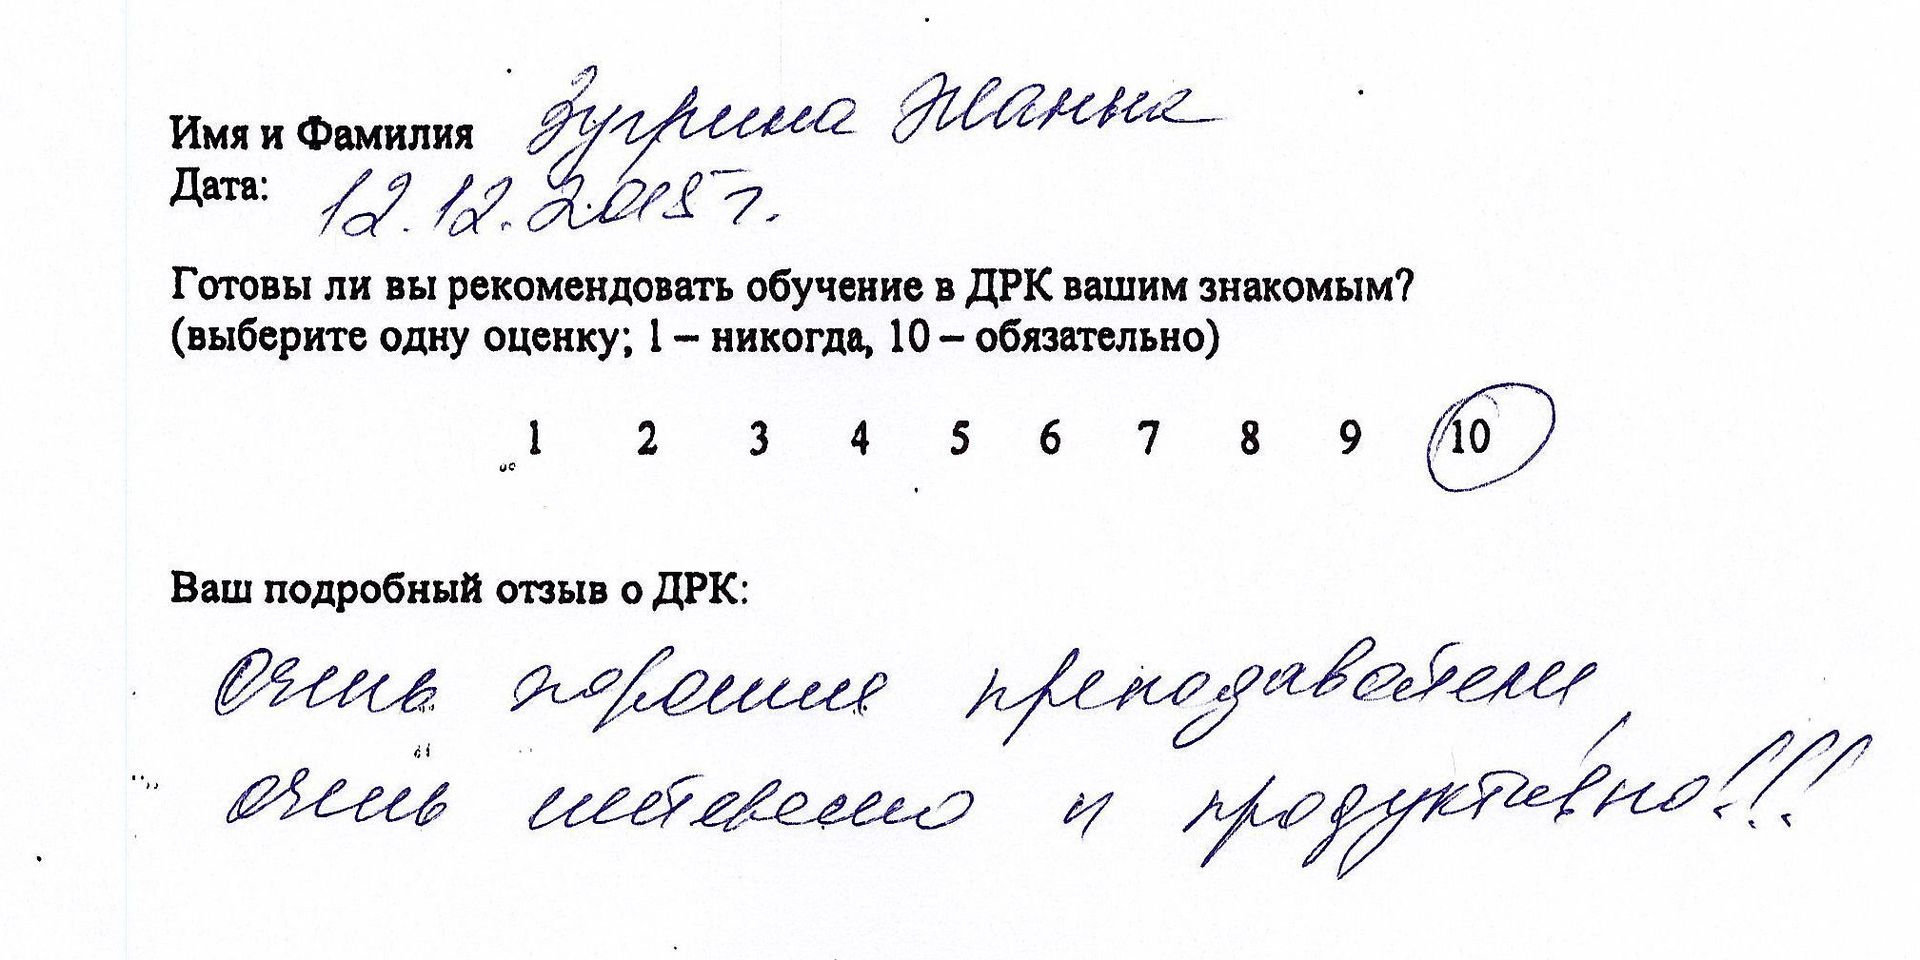 Имя и Фамилия Зугрина Жанна
Дата: 12.12.2015 г.
Готовы ли вы рекомендовать обучение в ДРК вашим знакомым?
(выберите одну оценку; 1 – никогда, 10 – обязательно)
1 2 3 4 5 6 7 8 9 10
Ваш подробный отзыв о ДРК:
Очень хорошие преподаватели,
очень и продуктивно!!!